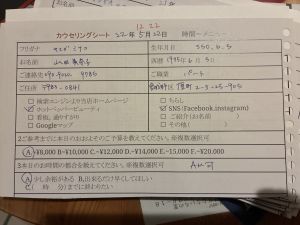 12 22
カウセリングシート 22年 5月22日 時間〜メニュー
フリガナ 生年月日 S50.6.5
お名前 西暦 1975年 6月 5日
ご連絡先 090- ご職業 パート
ご住所 〒983-0841
□ 検索エンジンより当店ホームページ □ ちらし
☑ ホットペッパービューティ ☑ SNS(Facebook.instagram)
□ 看板、通りがかり □ ご紹介(お名前 )
□ Googleマップ □ その他( )
2ご参考までに本日のおおよそのご予算を教えてください。※複数選択可
A¥8,000 B~¥10,000 C~¥12,000 D.~14,000 E.~15,000 F.~¥20,000
3本日のお時間の都合を教えてください。※複数選択可
A.少し余裕がある B,出来るだけ早くしてほしい
C( 時 分)までに終わりたい